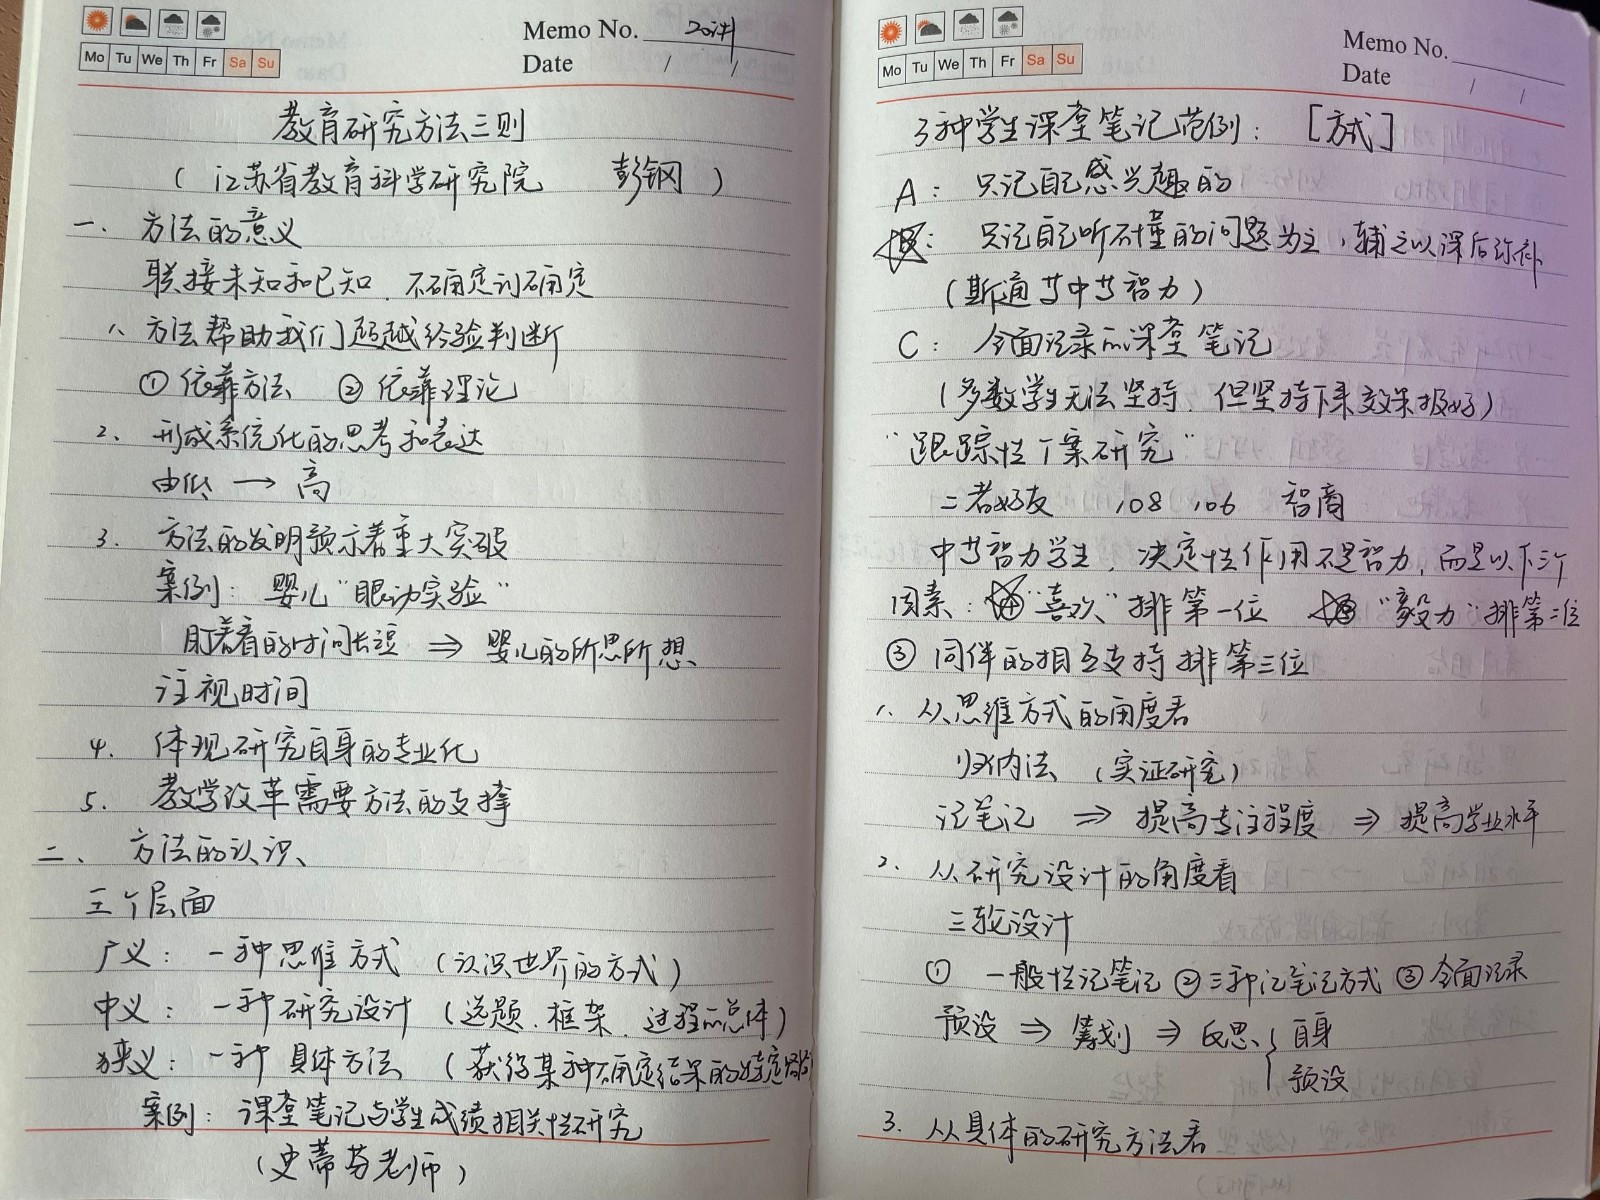 Memo No. 20讲
Mo Tu We Th Fr Sa Su
Date / /
教育研究方法三则
(江苏省教育科学研究院 彭钢)
一、方法的意义
联接未知和已知、不确定到确定
1、方法帮助我们超越经验判断
①依靠方法 ②依靠理论
2、形成系统化的思考和表达
由低 → 高
3. 方法的发明预示着重大突破
案例: 婴儿"眼动实验"
盯着看的时间长短 ⇒ 婴儿的所思所想、
注视时间
4. 体现研究自身的专业化
5. 教学改革需要方法的支撑
二、方法的认识、
三个层面
广义: 一种思维方式 (认识世界的方式)
中义: 一种研究设计 (选题、框架、过程的总体)
狭义: 一种具体方法 (获得某种确定结果的特定路径
案例: 课堂笔记与学生成绩相关性研究
(史蒂芬老师)
Memo No.
Mo Tu We Th Fr Sa Su
Date / /
3种学生课堂笔记范例: [方式]
A: 只记自己感兴趣的
B: 只记自己听不懂的问题为主,辅之以课后弥补
(斯通 中等智力)
C: 全面记录的课堂笔记
(多数学生无法坚持、但坚持下来效果极好)
"跟踪性个案研究"
二者好友 108 106 智商
中等智力学生,决定性作用不是智力,而是以下三个
因素: ①"喜欢"排第一位 ②"毅力"排第二位
③同伴的相互支持排第三位
1、从思维方式的角度看
归纳法 (实证研究)
记笔记 ⇒ 提高专注程度 ⇒ 提高学业水平
2. 从研究设计的角度看
三轮设计
① 一般性记笔记 ②三种记笔记方式 ③全面记录
预设 ⇒ 筹划 ⇒ 反思 { 自身
预设
3. 从具体的研究方法看